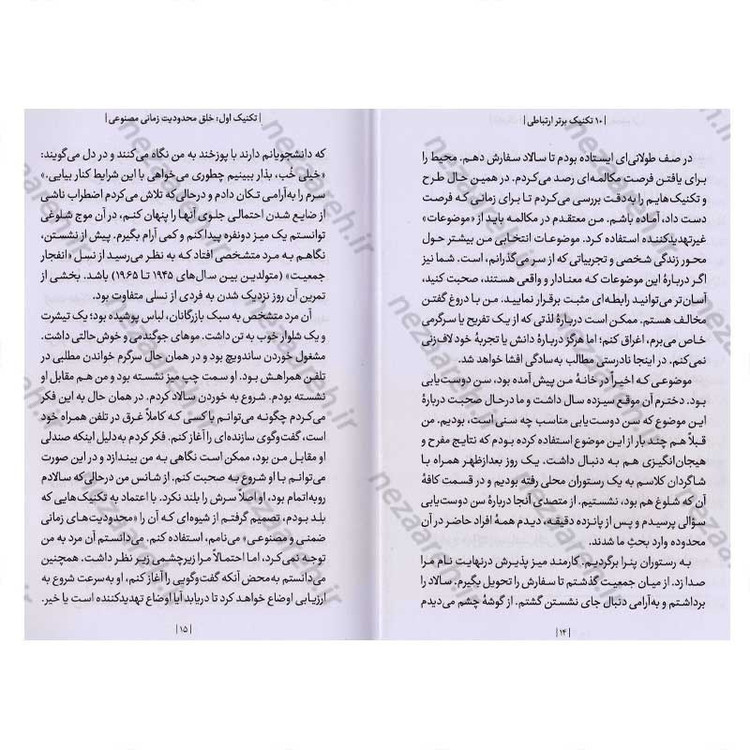 | ۱۰ تکنیک برتر ارتباطی |
در صف طولانی‌ای ایستاده بودم تا سالاد سفارش دهم. محیط را
برای یافتن فرصت مکالمه‌ای رصد می‌کردم. در همین حال طرح
و تکنیک‌هایم را به‌دقت بررسی می‌کردم تا برای زمانی که فرصت
دست داد، آماده باشم. من معتقدم در مکالمه باید از «موضوعات»
غیرتهدیدکننده استفاده کرد. موضوعات انتخابی من بیشتر حول
محور زندگی شخصی و تجربیاتی که از سر می‌گذرانم، است. شما نیز
اگر دربارهٔ این موضوعات که معنادار و واقعی هستند، صحبت کنید،
آسان‌تر می‌توانید رابطه‌ای مثبت برقرار نمایید. من با دروغ گفتن
مخالف هستم. ممکن است دربارهٔ لذتی که از یک تفریح یا سرگرمی
خاص می‌برم، اغراق کنم؛ اما هرگز دربارهٔ دانش یا تجربهٔ خود لاف‌زنی
نمی‌کنم. در اینجا نادرستی مطالب به‌سادگی افشا خواهد شد.
موضوعی که اخیراً در خانهٔ من پیش آمده بود، سن دوست‌یابی
بود. دخترم آن موقع سیزده سال داشت و ما درحال صحبت دربارهٔ
این موضوع که سن دوست‌یابی مناسب چه سنی است، بودیم. من
قبلاً هم چند بار از این موضوع استفاده کرده بودم که نتایج مفرح و
هیجان‌انگیزی هم به دنبال داشت. یک روز بعدازظهر همراه با
شاگردان کلاسم به یک رستوران محلی رفته بودیم و در قسمت کافهٔ
آن که شلوغ هم بود، نشستیم. از متصدی آنجا دربارهٔ سن دوست‌یابی
سؤالی پرسیدم و پس از پانزده دقیقه، دیدم همهٔ افراد حاضر در آن
محدوده وارد بحثِ ما شدند.
به رستوران پنرا برگردیم. کارمند میز پذیرش درنهایت نام مرا
صدا زد. از میان جمعیت گذشتم تا سفارش را تحویل بگیرم. سالاد را
برداشتم و به‌آرامی دنبال جای نشستن گشتم. از گوشهٔ چشم می‌دیدم
| ۱۴ |
| تکنیک اول: خلق محدودیت زمانی مصنوعی |
که دانشجویانم دارند با پوزخند به من نگاه می‌کنند و در دل می‌گویند:
«خیلی خُب، بذار ببینیم چطوری می‌خواهی با این شرایط کنار بیایی.»
سرم را به‌آرامی تکان دادم و درحالی‌که تلاش می‌کردم اضطراب ناشی
از ضایع شدن احتمالی جلوی آنها را پنهان کنم، در آن موج شلوغی
توانستم یک میز دونفره پیدا کنم و کمی آرام بگیرم. پیش از نشستن،
نگاهم به مرد متشخصی افتاد که به نظر می‌رسید از نسل «انفجار
جمعیت» (متولدین بین سال‌های ۱۹۴۵ تا ۱۹۶۵) باشد. بخشی از
تمرین آن روز نزدیک شدن به فردی از نسلی متفاوت بود.
آن مرد متشخص به سبک بازرگانان، لباس پوشیده بود؛ یک تیشرت
و یک شلوار خوب به تن داشت. موهای جوگندمی و خوش‌حالتی داشت.
مشغول خوردن ساندویچ بود و در همان حال سرگرم خواندن مطلبی در
تلفن همراهش بود. او سمت چپ میز نشسته بود و من هم مقابل او
نشسته بودم. شروع به خوردن سالاد کردم. در همان حال به این فکر
می‌کردم چگونه می‌توانم با کسی که کاملاً غرق در تلفن همراه خود
است، گفت‌وگوی سازنده‌ای را آغاز کنم. فکر کردم به‌دلیل اینکه صندلی
او مقابل من بود، ممکن است نگاهی به من بیندازد و در این صورت
می‌توانم با او شروع به صحبت کنم. از شانس من درحالی‌که سالادم
روبه‌اتمام بود، او اصلاً سرش را بلند نکرد. با اعتماد به تکنیک‌هایی که
بلد بودم، تصمیم گرفتم از شیوه‌ای که آن را «محدودیت‌های زمانی
ضمنی و مصنوعی» می‌نامم، استفاده کنم. می‌دانستم آن مرد به من
توجه نمی‌کرد، اما احتمالاً مرا زیرچشمی زیر نظر داشت. همچنین
می‌دانستم به‌محض آنکه گفت‌وگویی را آغاز کنم، او به‌سرعت شروع به
ارزیابی اوضاع خواهد کرد تا دریابد آیا اوضاع تهدیدکننده است یا خیر.
| ۱۵ |
nezaareh.ir